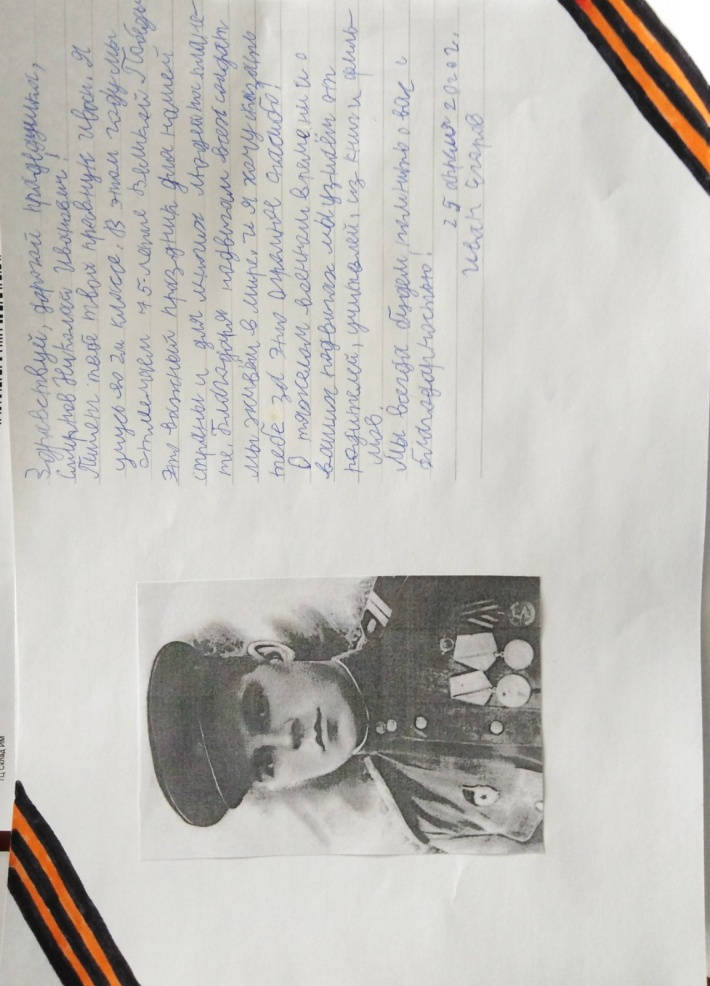 Здравствуй, дорогой прадедушка,
Смирнов Николай Иванович!
Пишет тебе твой правнук Иван. Я
учусь во 2и классе. В этом году мы
отмечаем 75-летие Великой Победы
это важный праздник для нашей
страны и для многих людей на плане-
те. Благодаря подвигам всех солдат
мы живём в мире. и я хочу сказать
тебе за это огромное спасибо!
О тяжелом военном времени и о
ваших подвигах мы узнаём от
родителей, учителей, из книг и филь-
мов.
Мы всегда будем помнить о вас с
благодарностью!
25 2020г.
Иван Егоров